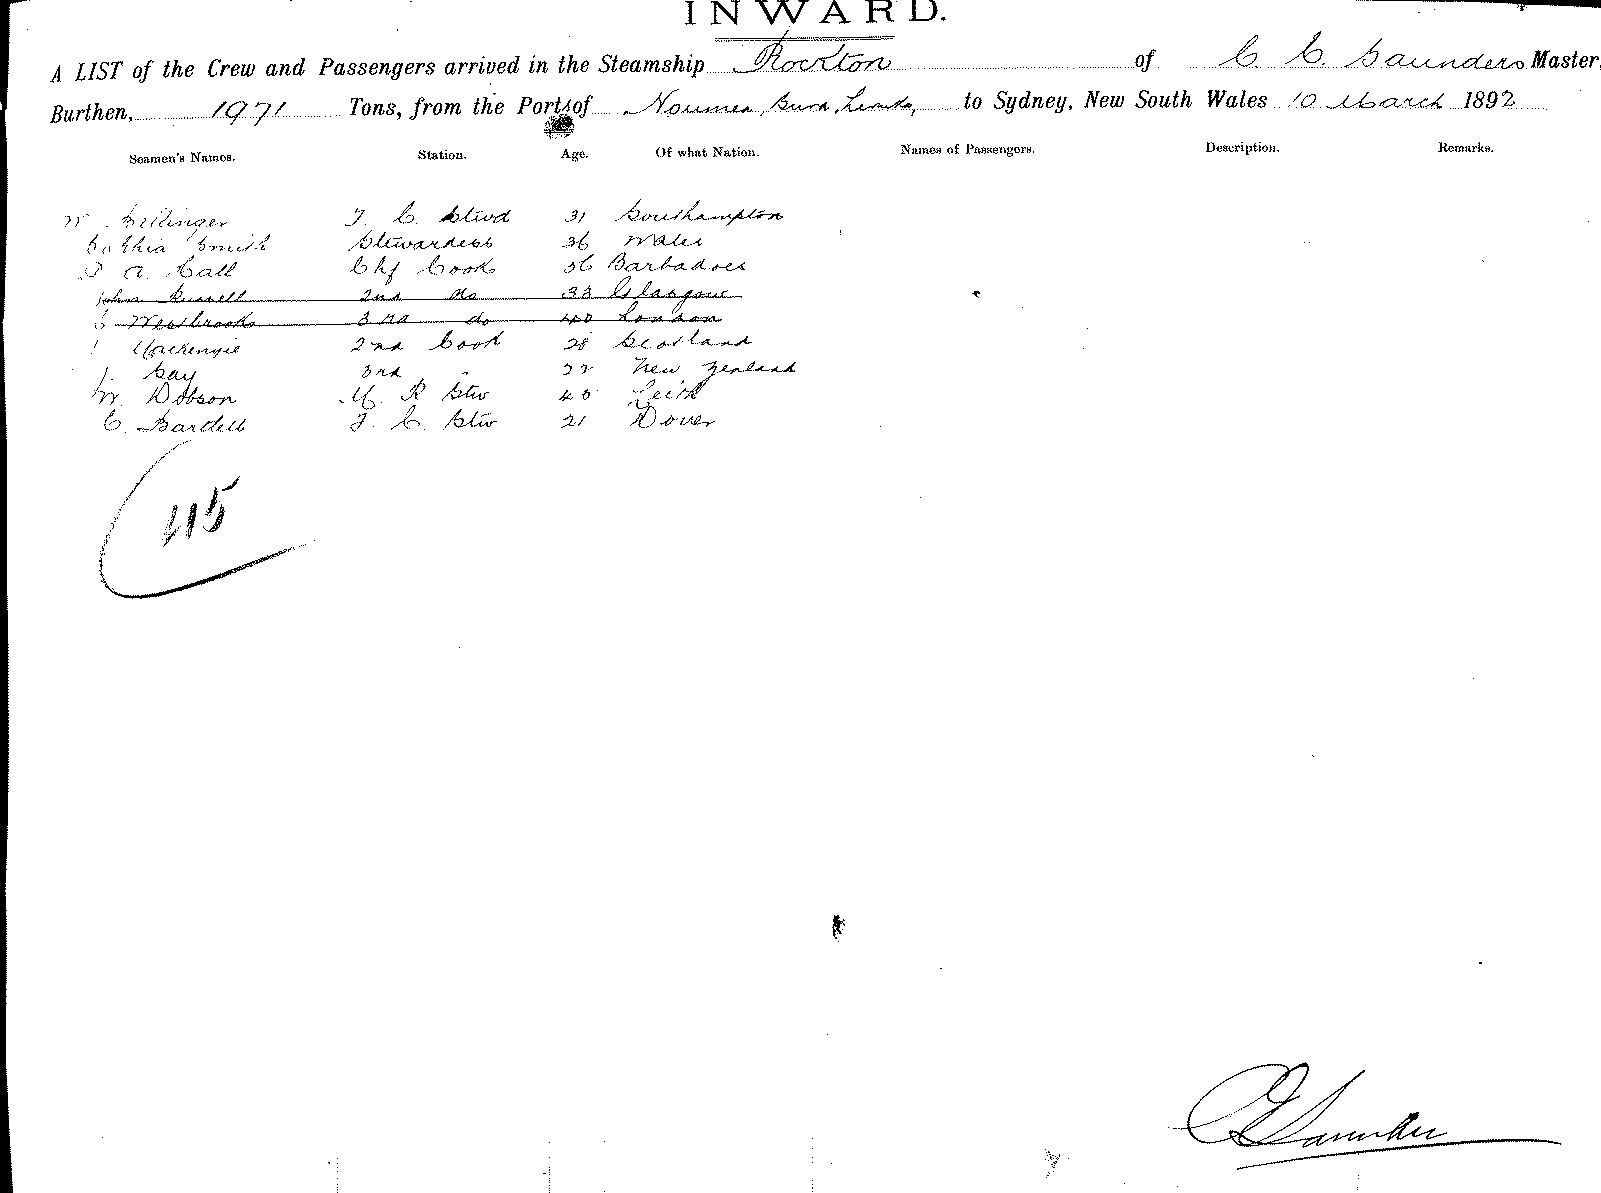 INWARD.
A LIST of the Crew and Passengers arrived in the Steamship Rockton of C C Saunders Master,
Burthen, 1971 Tons, from the Ports of Noumea, Suva, Levuka, to Sydney, New South Wales 10 March 1892
Seamen's Names. Station. Age. Of what Nation. Names of Passengers. Description. Remarks.
W. F. C. Stwd 31 Southampton
Sophia Smith Stewardess 36 Wales
A. Call Chf Cook 36 Barbadoes
John Russell 2nd do 33 Glasgow
Westbrooks 3rd do 40 London
Mackenzie 2nd Cook 28 Scotland
Gay 3rd " 22 New Zealand
W. Dobson M. R Stw 40 Leith
C. Bardell F. C. Stw 21 Dover
45
C Saunders